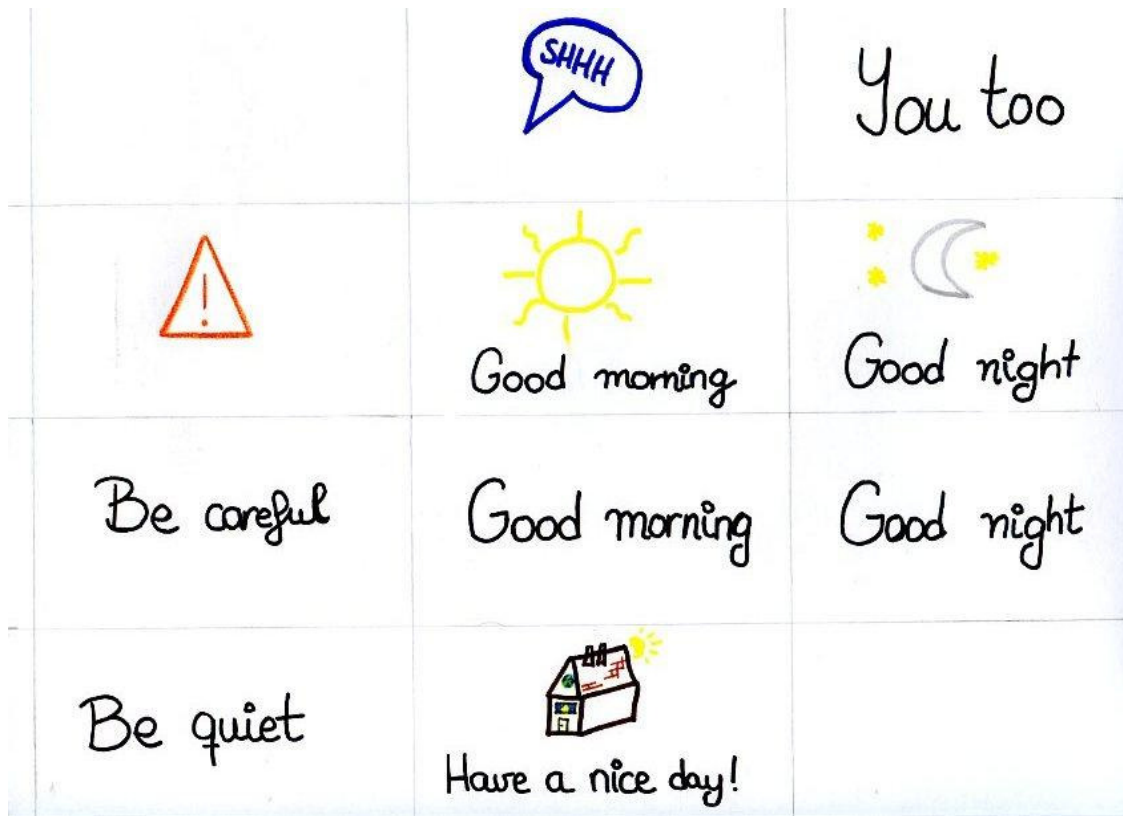 SHHH
You too
!
Good morning
Good night
Be careful
Good morning
Good night
Be quiet
Have a nice day!